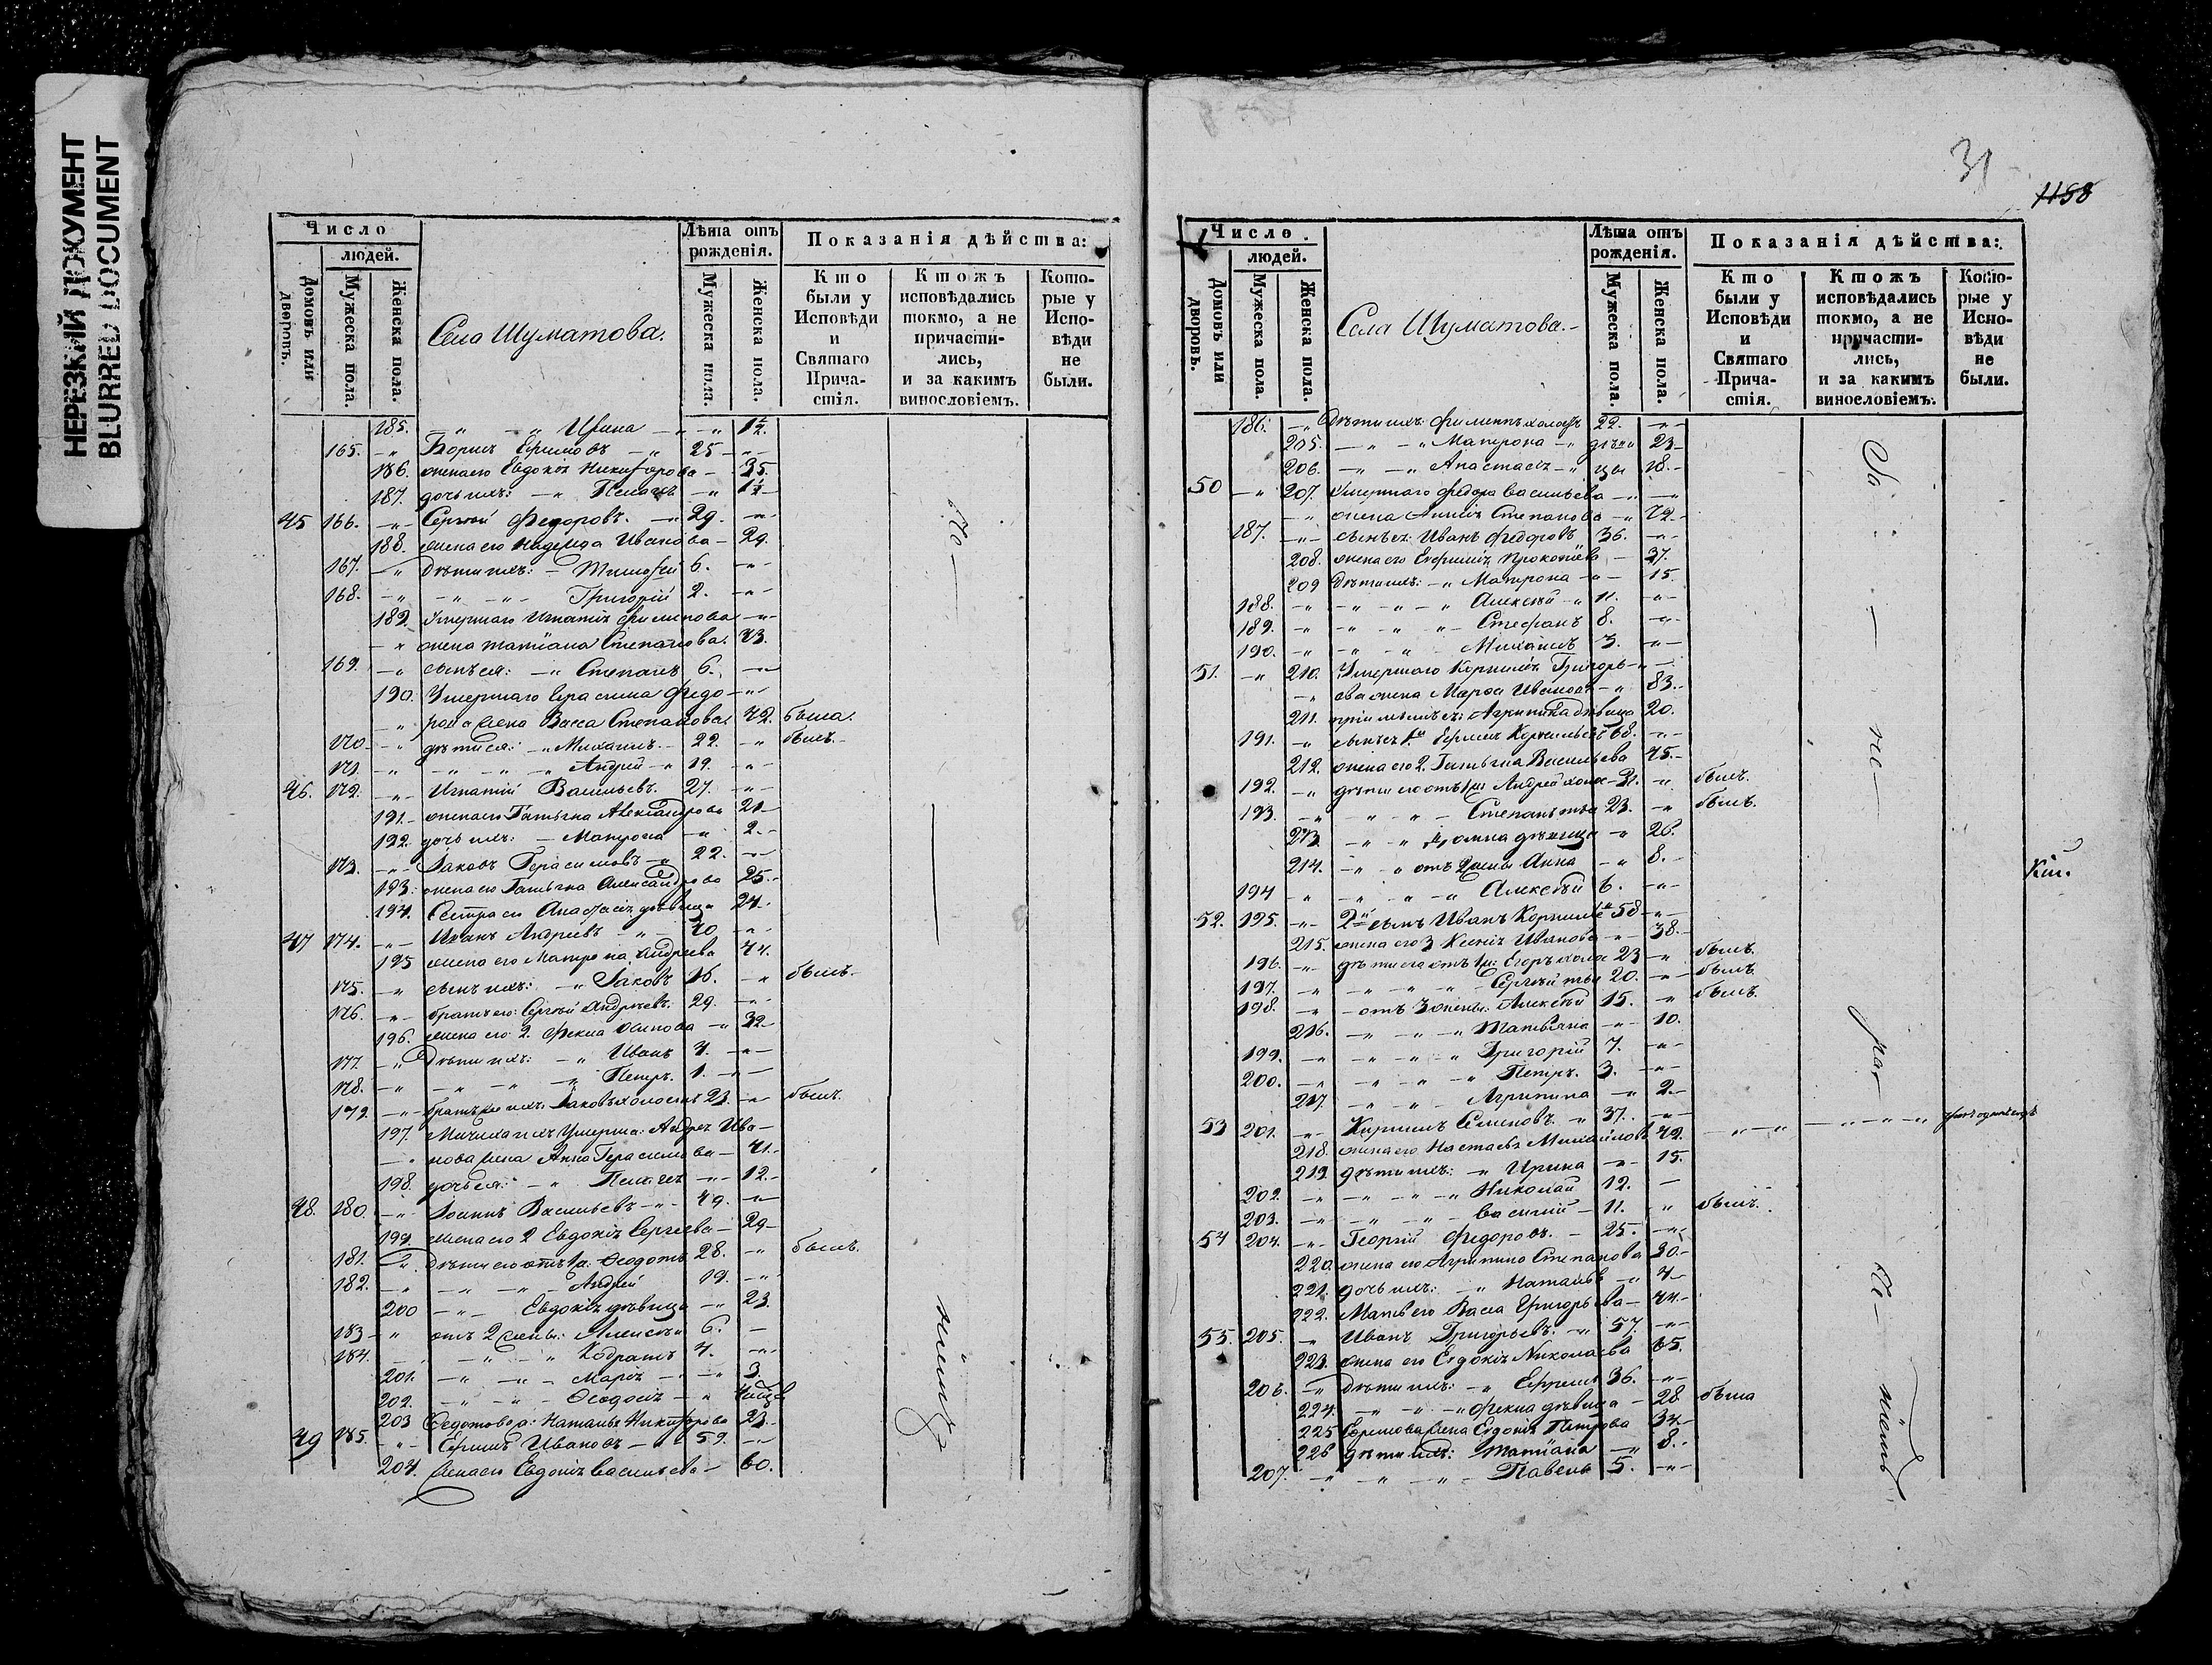 НЕРЕЗКИЙ ДОКУМЕНТ
BLURRED DOCUMENT
Число
людей.
Домовъ или дворовъ.
Мужеска пола.
Женска пола.
Села Шуматова.
Лѣта отъ рожденія.
Мужеска пола.
Женска пола.
Показанія дѣйства:
Кто были у Исповѣди и Святаго Прича-стія.
Ктожъ исповѣдались токмо, а не причасти-лись, и за какимъ винословіемъ.
Кото-рые у Испо-вѣди не были.
185. Ирина 1½.
165. Борисъ Ефимовъ 25
186. жена его Евдокія Никифорова 35.
187. дочь ихъ: Пелагея 1½
45 166. Сергѣй Федоровъ. 29.
188. жена его Надежда Иванова 29.
167. Дѣти ихъ: Тимофей 6.
168. Григорій 2.
189. Умершаго Игнатія Филипова
жена Татіана Степанова. 43.
169. сынъ ея: Степанъ 6.
190. Умершаго Герасима Федо-
рова жена Васса Степанова 42. была.
170. дѣти ея: Михаилъ 22. былъ.
171. Андрей 19.
46. 172. Игнатій Васильевъ. 27.
191. жена его Татьяна Александрова 21
192. дочь ихъ: Матрона 2.
173. Іаковъ Герасимовъ 22.
193. жена его Татьяна Александрова 25.
194. Сестра его Анастасія дѣвица 24.
47 174. Иванъ Андреевъ 40
195 жена его Матрона Андреева 44.
175. сынъ ихъ: Іаковъ 16. былъ.
176. братъ его: Сергѣй Андреевъ. 29.
196. жена его 2. Фекла Осипова 32.
177. Дѣти ихъ: Иванъ 4.
178. Петръ. 1.
179. Іаковъ холостъ 23. былъ.
197. Мачиха ихъ Умерша: Андрея Ива-
нова жена Анна Герасимова 41.
198. дочь ея: Пелагея 12.
48. 180. Іоаннъ Васильевъ 49.
199. жена его 2 Евдокія Сергеева 29
181. Дѣти его отъ 1й: Ѳедотъ 28. былъ.
182. Андрей 19.
200 Евдокія дѣвица 23.
183 отъ 2 жены: Алексѣй 6.
184. Кодратъ 4.
201. Марія 3.
202. Ѳеодосія
203 Ѳедотова ж: Наталья Никифорова 23.
49 185. Ефимъ Ивановъ 59.
204. Жена его Евдокія Васильева 60.
31
1158
Число.
людей.
Домовъ или дворовъ.
Мужеска пола.
Женска пола.
Села Шуматова.
Лѣта отъ рожденія.
Мужеска пола.
Женска пола.
Показанія дѣйства:
Кто были у Исповѣди и Святаго Прича-стія.
Ктожъ исповѣдались токмо, а не причасти-лись, и за какимъ винословіемъ.
Кото-рые у Испо-вѣди не были.
186. Дѣти ихъ: Филиппъ холостъ 22.
205. Матрона 23
206. Анастасія 18.
50 207. Умершаго Федора Васильева
жена Аннія Степанова 72.
187. сынъ ея: Иванъ Федоровъ 36.
208. жена его Евфимія Прокопіева 37.
209 Дѣти ихъ: Матрона 15.
188. Алексѣй 11.
189. Стефанъ 8.
190. Михаилъ 3.
51. 210. Умершаго Корнилія Григорь-
ева жена Марфа Иванова 83.
211. Агрипина дѣвица 20.
191. сынъ ея 1й Ермилъ Корнильевъ 68.
212. жена его 2. Татьяна Васильева 45.
192. дѣти его отъ 1й Андрей холос 31. былъ.
193. Степанъ 23. былъ.
213. Домна дѣвица 26.
214. отъ 2 жены Анна 8.
Кіи.
194 Алексѣй 6.
52. 195. 2й сынъ Иванъ Корнильевъ 58
215. жена его 3 Ксенія Иванова 38.
196. дѣти его отъ 1й: Егоръ холос 23 былъ.
197. Сергѣй 20. былъ
198. отъ 3 жены: Алексѣй 15. былъ.
216. Татьяна 10.
199. Григорій 7.
200. Петръ. 3.
217. Агрипина 2
53 201. Кирилъ Семеновъ. 37.
218. жена его Настасья Михайлова 42.
219 дѣти ихъ: Ирина 15.
202. Николай 12.
203. Василій 11. былъ.
54 204. Георгій Федоровъ. 25.
220. жена его Агрипина Степанова 30.
221. дочь ихъ: Наталья 4
222. Мать его Васса Григорьева 44.
55. 205. Иванъ Григорьевъ. 57.
223. жена его Евдокія Николаева 65.
206. Дѣти ихъ: Ефремъ 36.
224. Фекла дѣвица 28. была
225 Ефремова жена Евдокія Петрова 34.
226 дѣти ихъ: Татіана 8.
207. Павелъ 5.